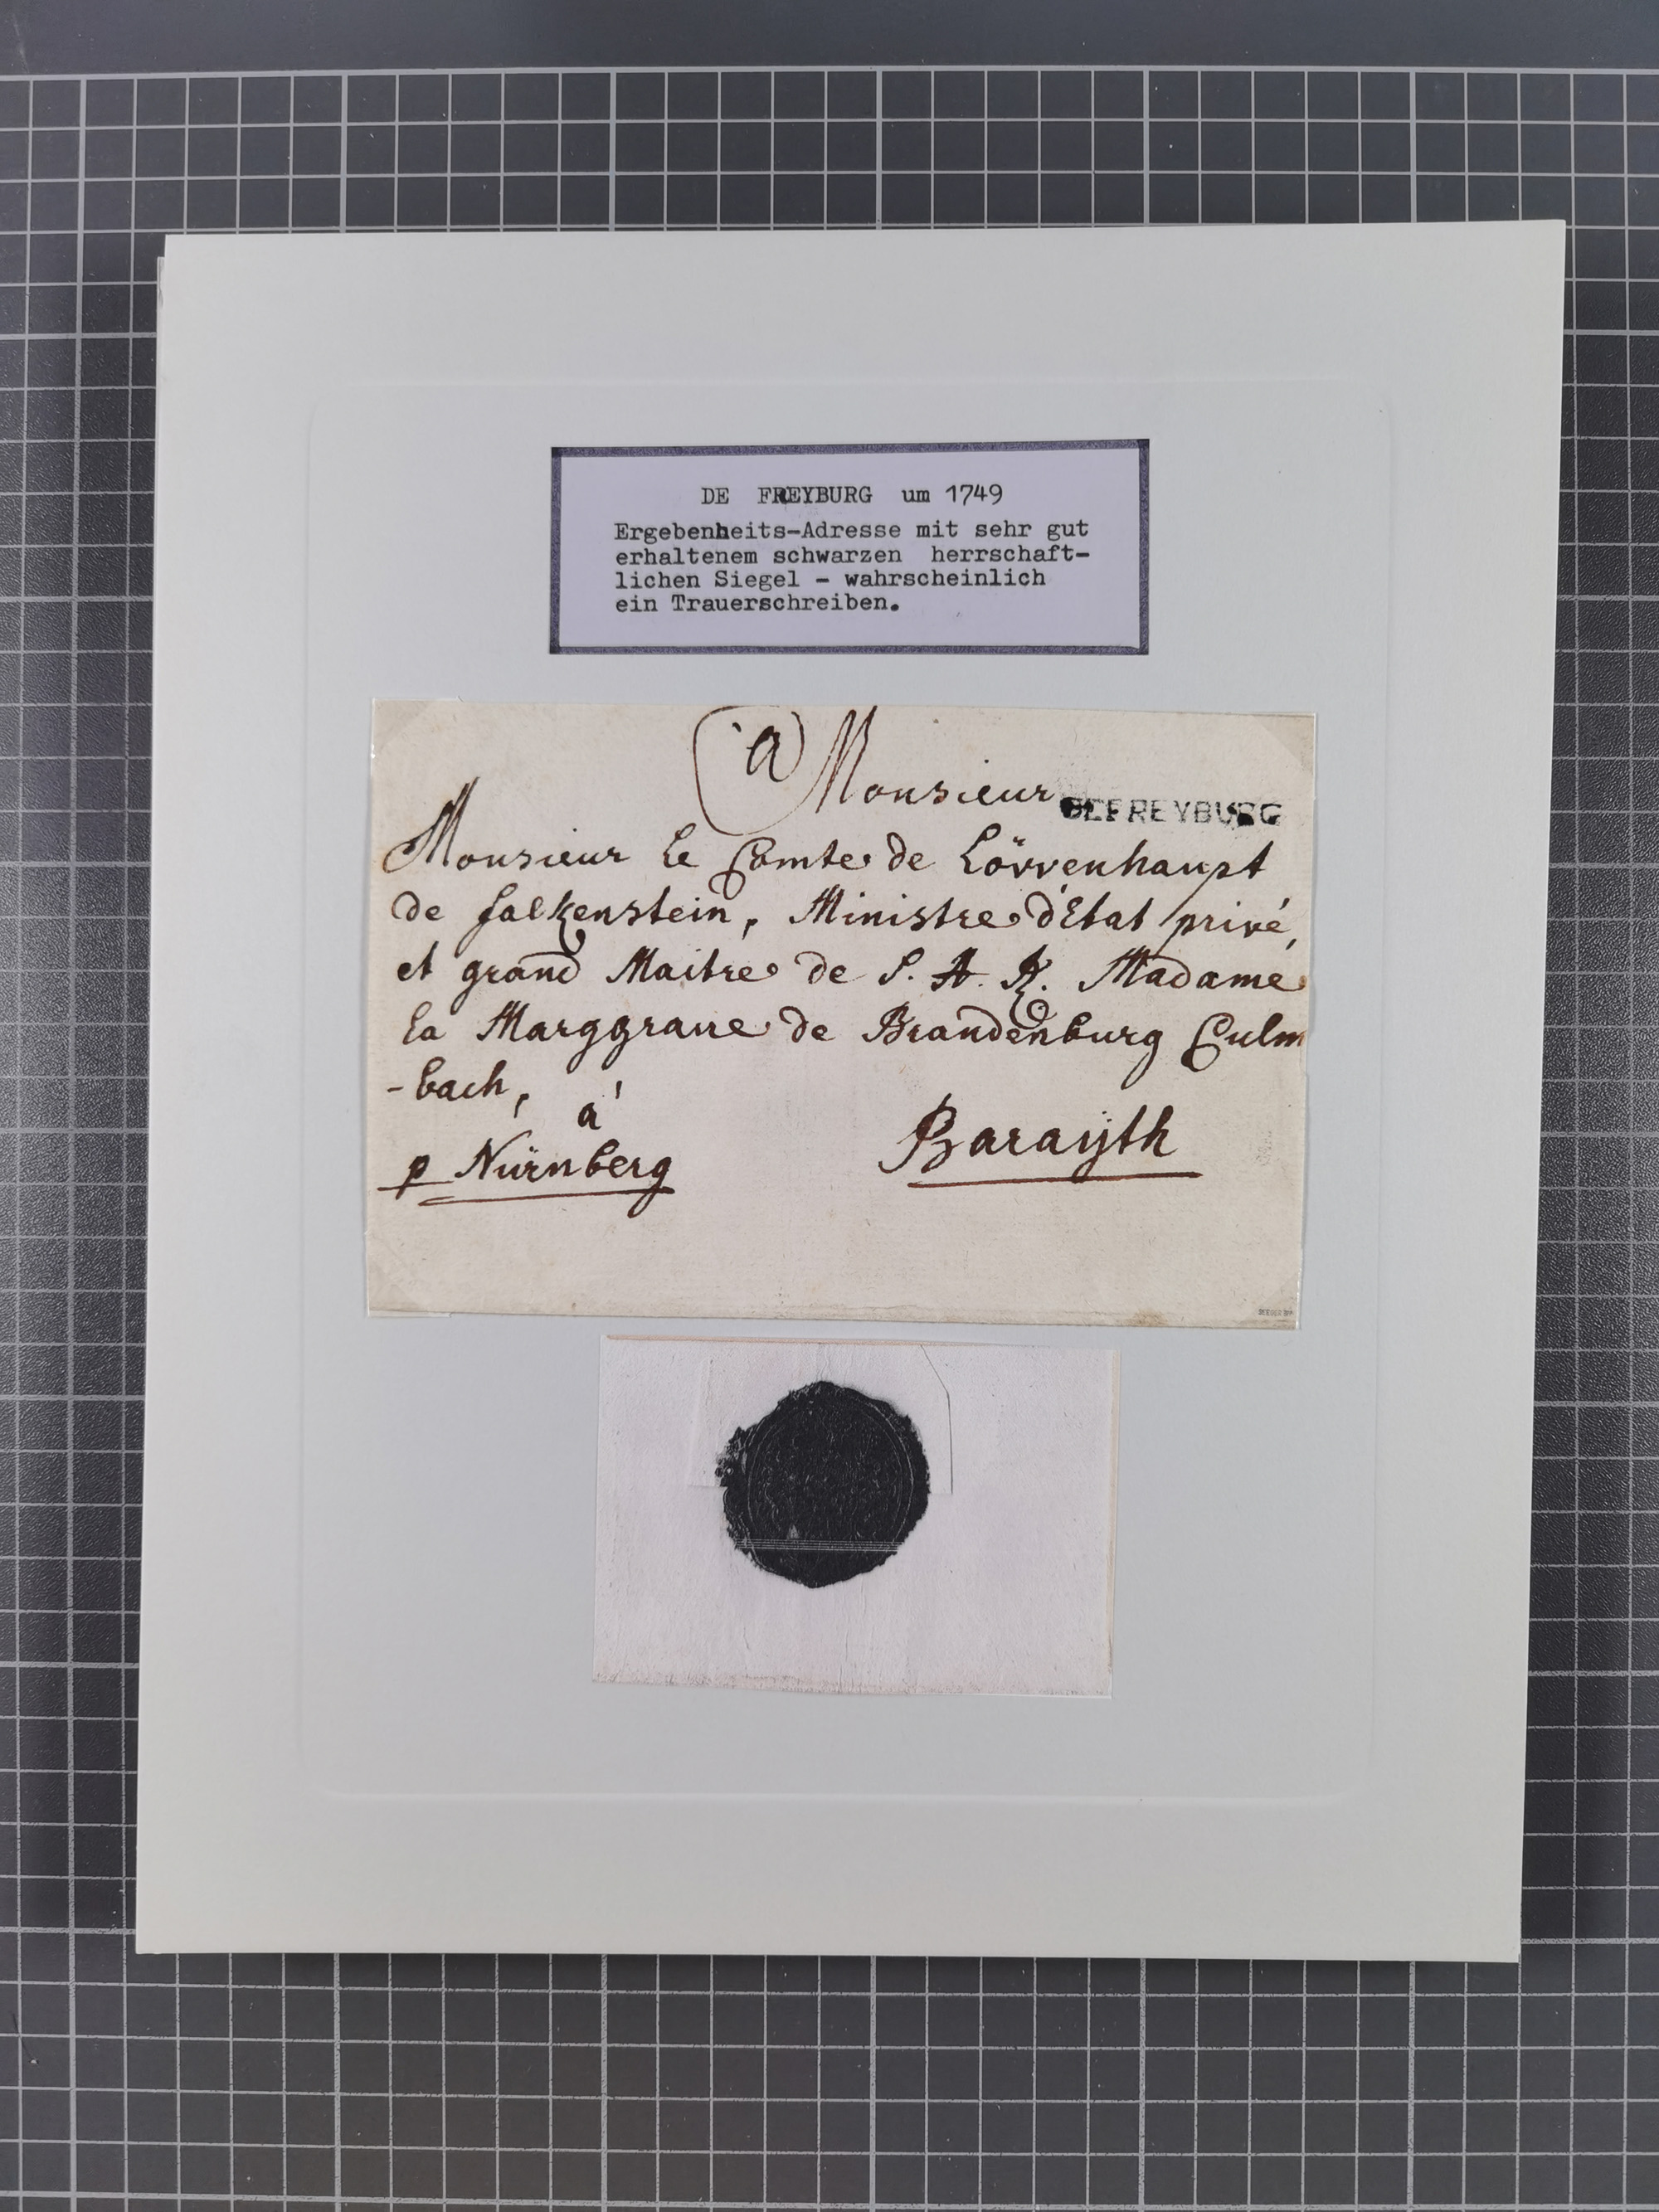 DE FREYBURG um 1749
Ergebenheits-Adresse mit sehr gut
erhaltenem schwarzen herrschaft-
lichen Siegel - wahrscheinlich
ein Trauerschreiben.
A Monsieur
DEFREYBURG
Monsieur le Comte de Lövvenhaupt
de falkenstein, Ministre d'Etat privé,
et grand Maitre de S. A. R. Madame
la Marggrave de Brandenburg Culm
-bach,
à
p Nürnberg
Baraijth